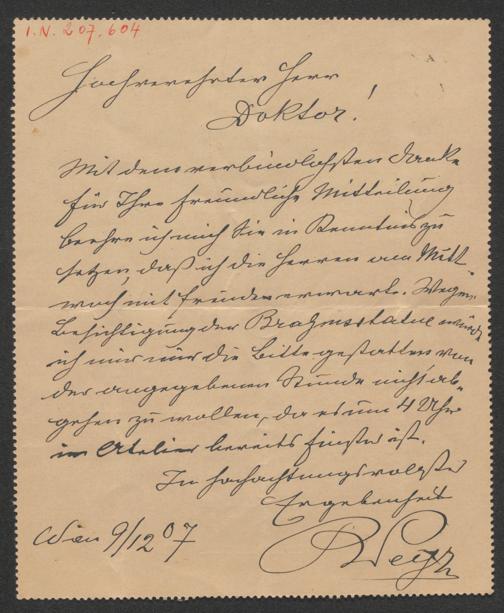 I.N. 207.604
Hochverehrter Herr
Doktor!
Mit dem verbindlichsten Danke
für Ihre freundliche Mitteilung
beehre ich mich Sie in Kenntnis zu
setzen, daß ich die Herren am Mitt-
woch mit Freuden erwarte. Wegen
Besichtigung der Brahmsstatue würde
ich mir nur die Bitte gestatten von
der angegebenen Stunde nicht ab-
gehen zu wollen, da es um 4 Uhr
im Atelier bereits finster ist.
In hochachtungsvollster
Ergebenheit
RWeyr
Wien 9/12 07